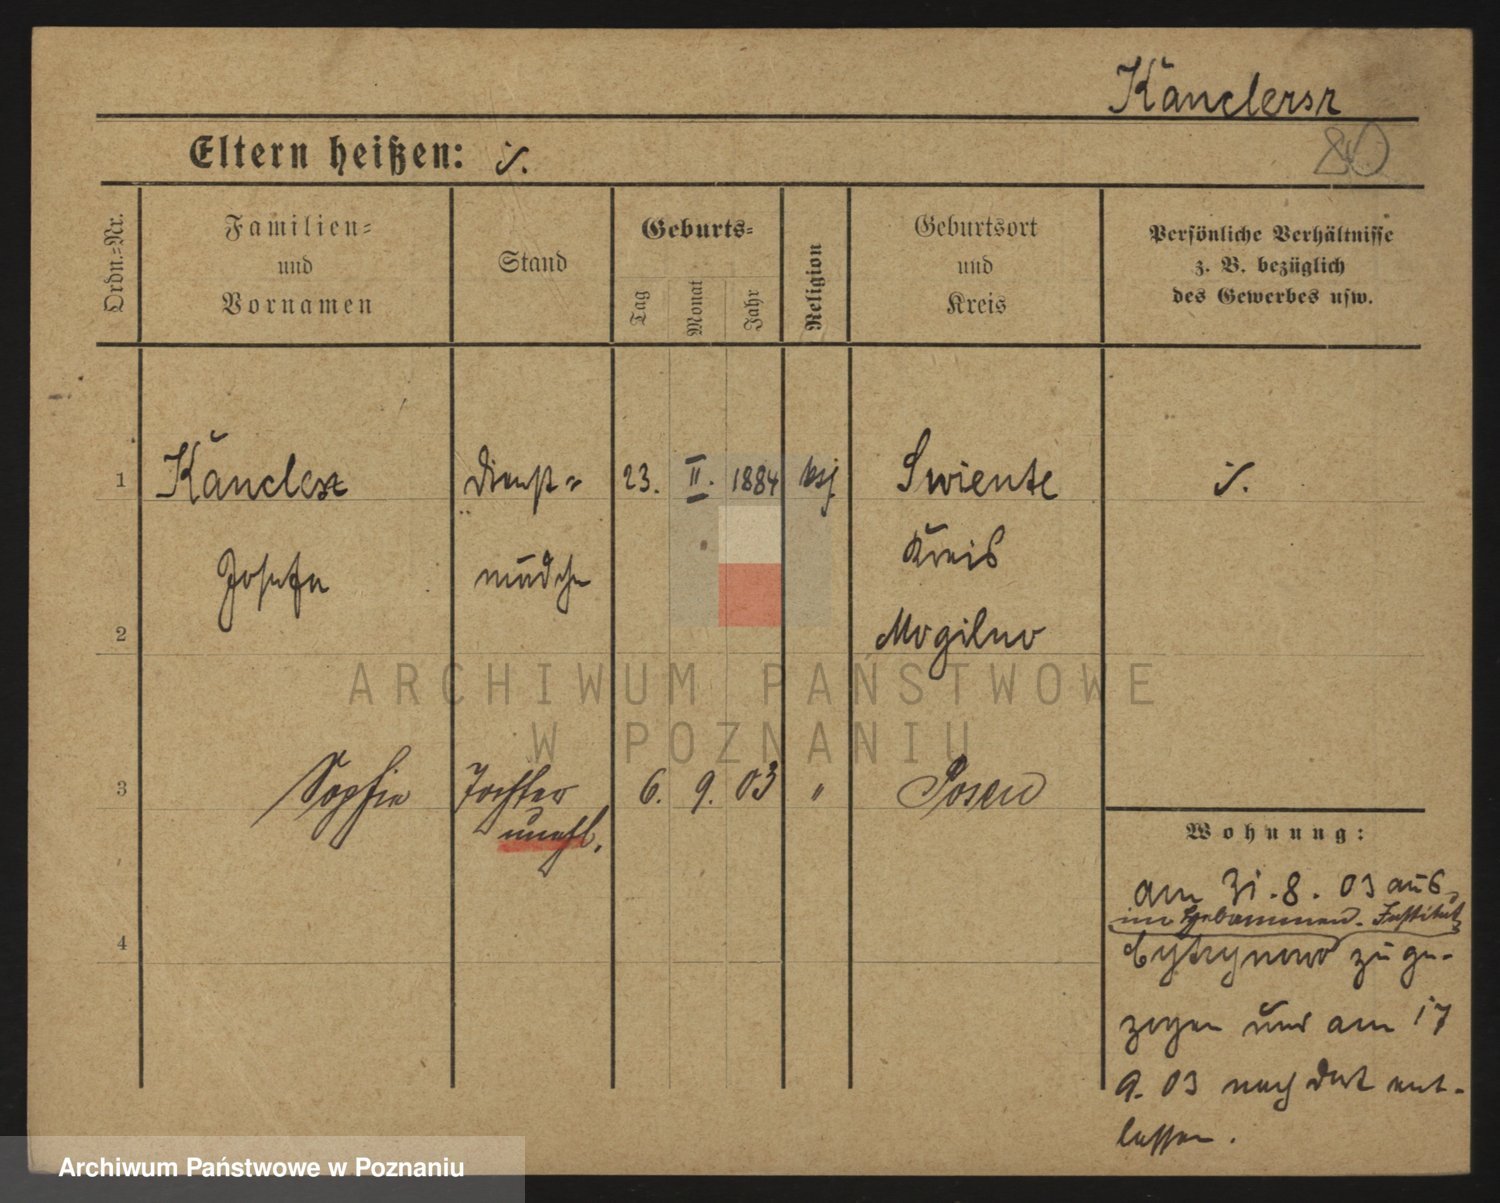 Kanclersz
80
Eltern heißen: ·/.
Ordn.-Nr.
Familien-
und
Vornamen
Stand
Geburts-
Tag
Monat
Jahr
Religion
Geburtsort
und
Kreis
Persönliche Verhältnisse
z. B. bezüglich
des Gewerbes usw.
1
Kanclerz
Dienst-
23.
II.
1884
ksj
Swiente
·/.
Josefa
mädchen
Kreis
2
Mogilno
3
Sophie
Tochter
6.
9.
03
"
Posen
unehl.
Wohnung:
am 31.8.03 aus
im Hebammen-Institut
Cytrynowo zuge-
4
zogen und am 17
9.03 nach dort ent-
lassen.
ARCHIWUM PAŃSTWOWE
W POZNANIU
Archiwum Państwowe w Poznaniu